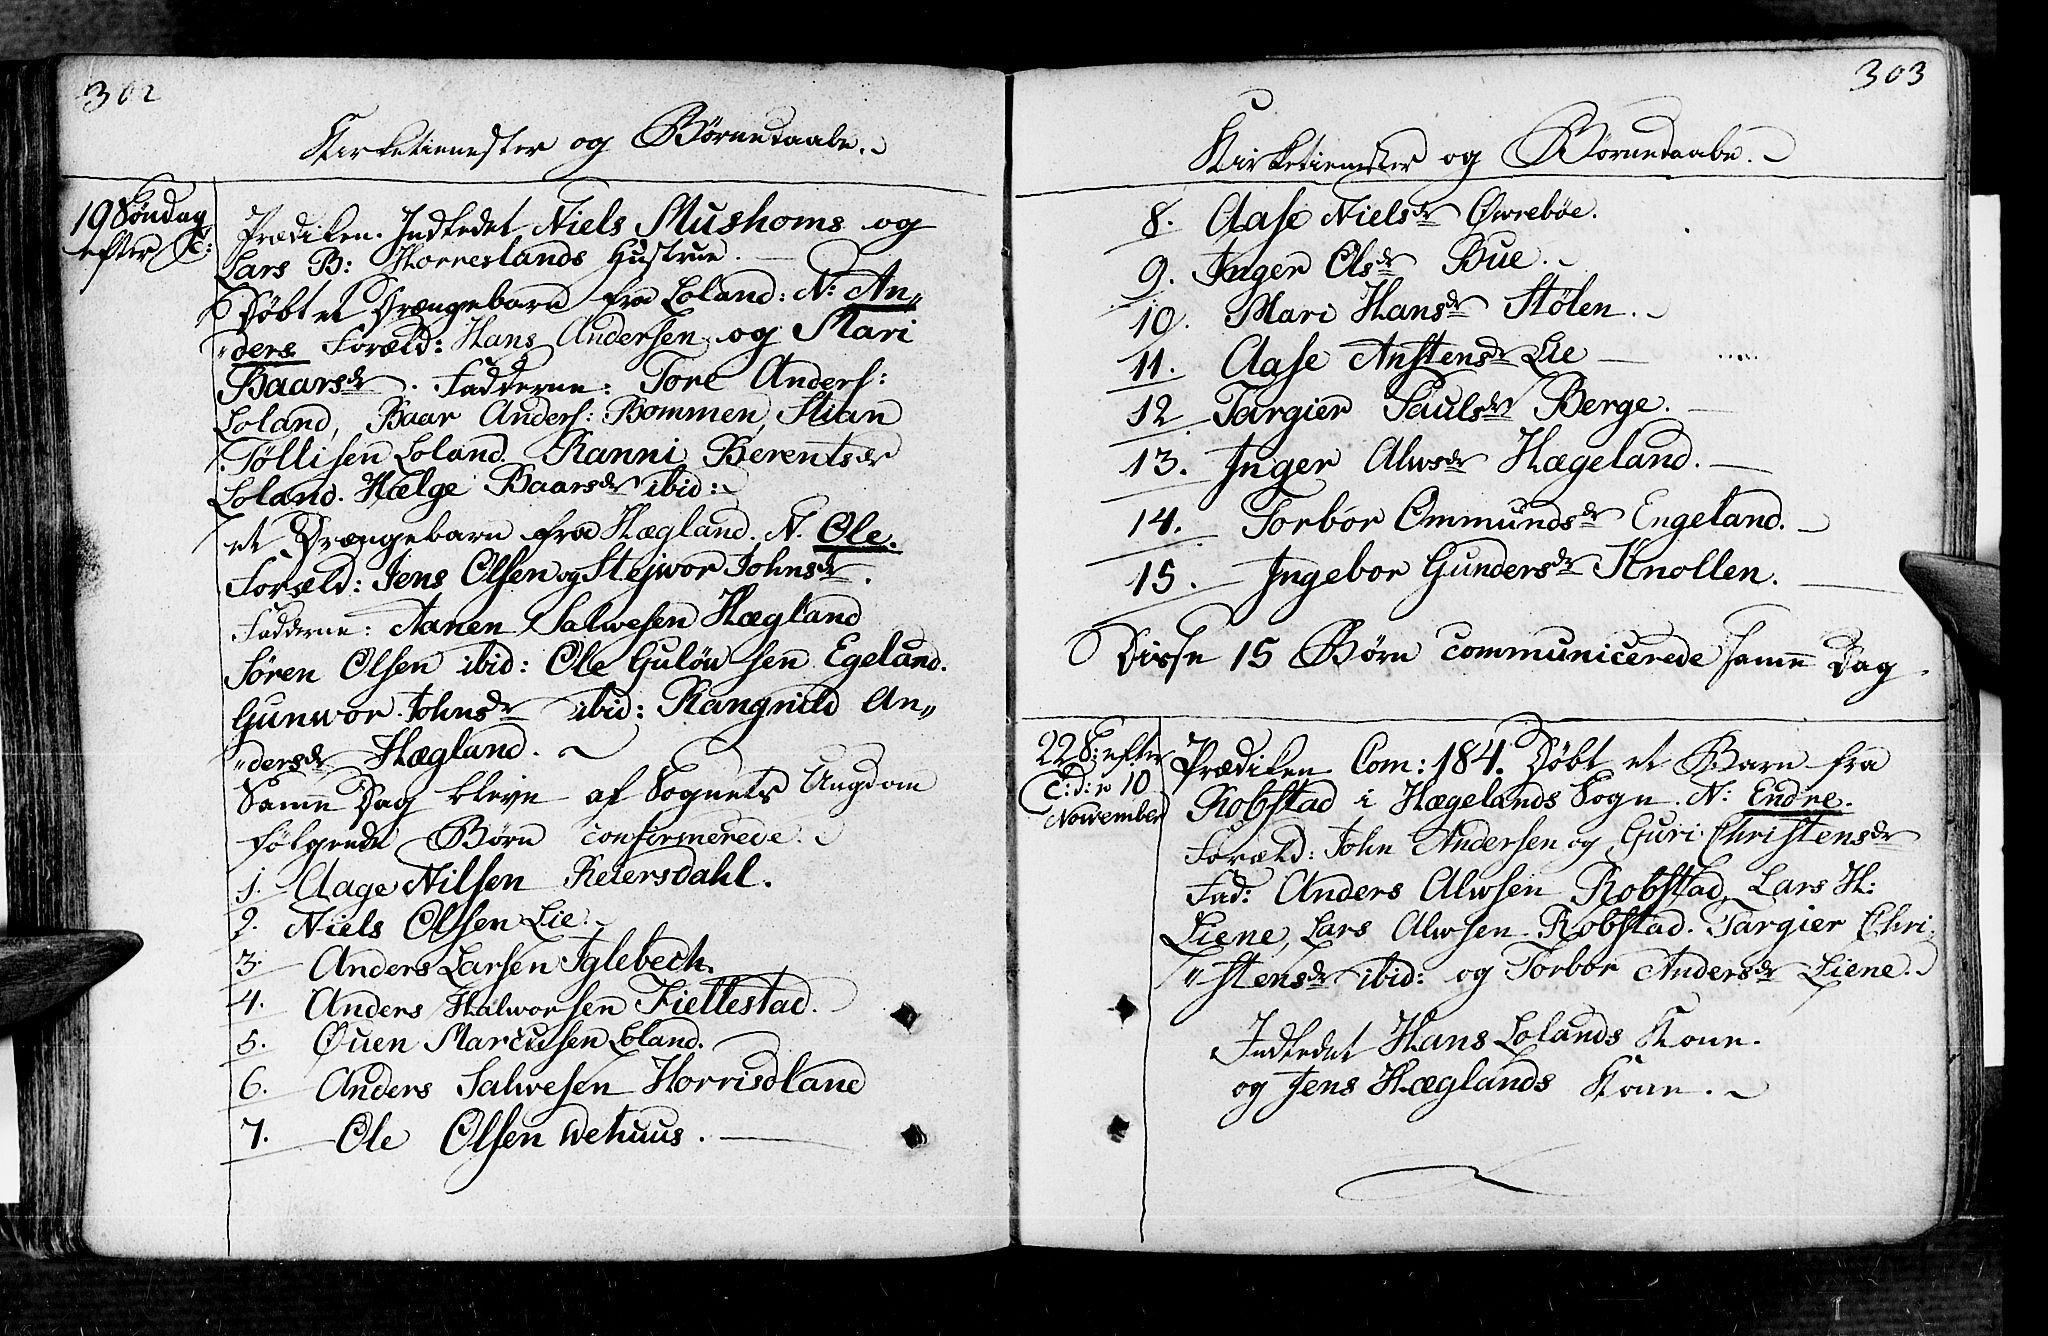 302
Kirketienester og Börnedaabe.
19 Söndag
efter Tr:
Prædiken. Indledet Niels Mushoms og
Lars B: Horrerlands Hustrue.
Döbt et Drængebarn fra Loland: N: An„
„ders Foræld: Hans Andersen og Mari
Baarsdr. Fadderne: Tore Anders:
Loland, Baar Anders: Bommen, Stian
Töllisen Loland. Ranni Berentsdr
Loland. Hælge Baarsdr ibid:
et Drængebarn fra Hægland. N. Ole.
Foræld: Jens Olsen og Stejwor Johnsdr.
Fadderne: Aanen Salwesen Hægland
Sören Olsen ibid: Ole Gulöu sen Egeland.
Gunwor Johnsdr ibid: Rangnild An„
„dersdr Hægland.
Samme Dag bleve af Sognets Ungdom
fölgende Börn confirmerede.
1. Aage Nilsen Reiersdahl.
2. Niels Olsen Lie.
3. Anders Larsen Iglebech.
4. Anders Halworsen Fiellestad.
5. Øuen Marcusen Loland.
6. Anders Salwesen Horrisdland
7. Ole Olsen Wehuus.
303
Kirketienester og Börnedaabe.
8. Aase Nielsdr Øwrebøe.
9. Inger Olsdr Bue.
10. Mari Hansdr Stölen.
11. Aase Anstensdr Lie
12 Targier Saulsdr Berge.
13. Inger Alwsdr Hægeland.
14. Torbor Ommundsdr Engeland.
15. Ingebor Gundersdr Knollen.
Disse 15 Börn communicerede samme Dag
22 S: efter
T: d: 10
November
Prædiken Com: 184. Döbt et Barn fra
Robstad i Hægelands Sogn. N: Endre.
Foræld: John Andersen og Guri Christensdr
Fad: Anders Alwsen Robstad, Lars H:
Liene, Lars Alwsen Robstad. Targier Chri„
„stensdr ibid: og Torbor Andersdr Liene.
Indledet Hans Lolands Kone.
og Jens Hæglands Kone.